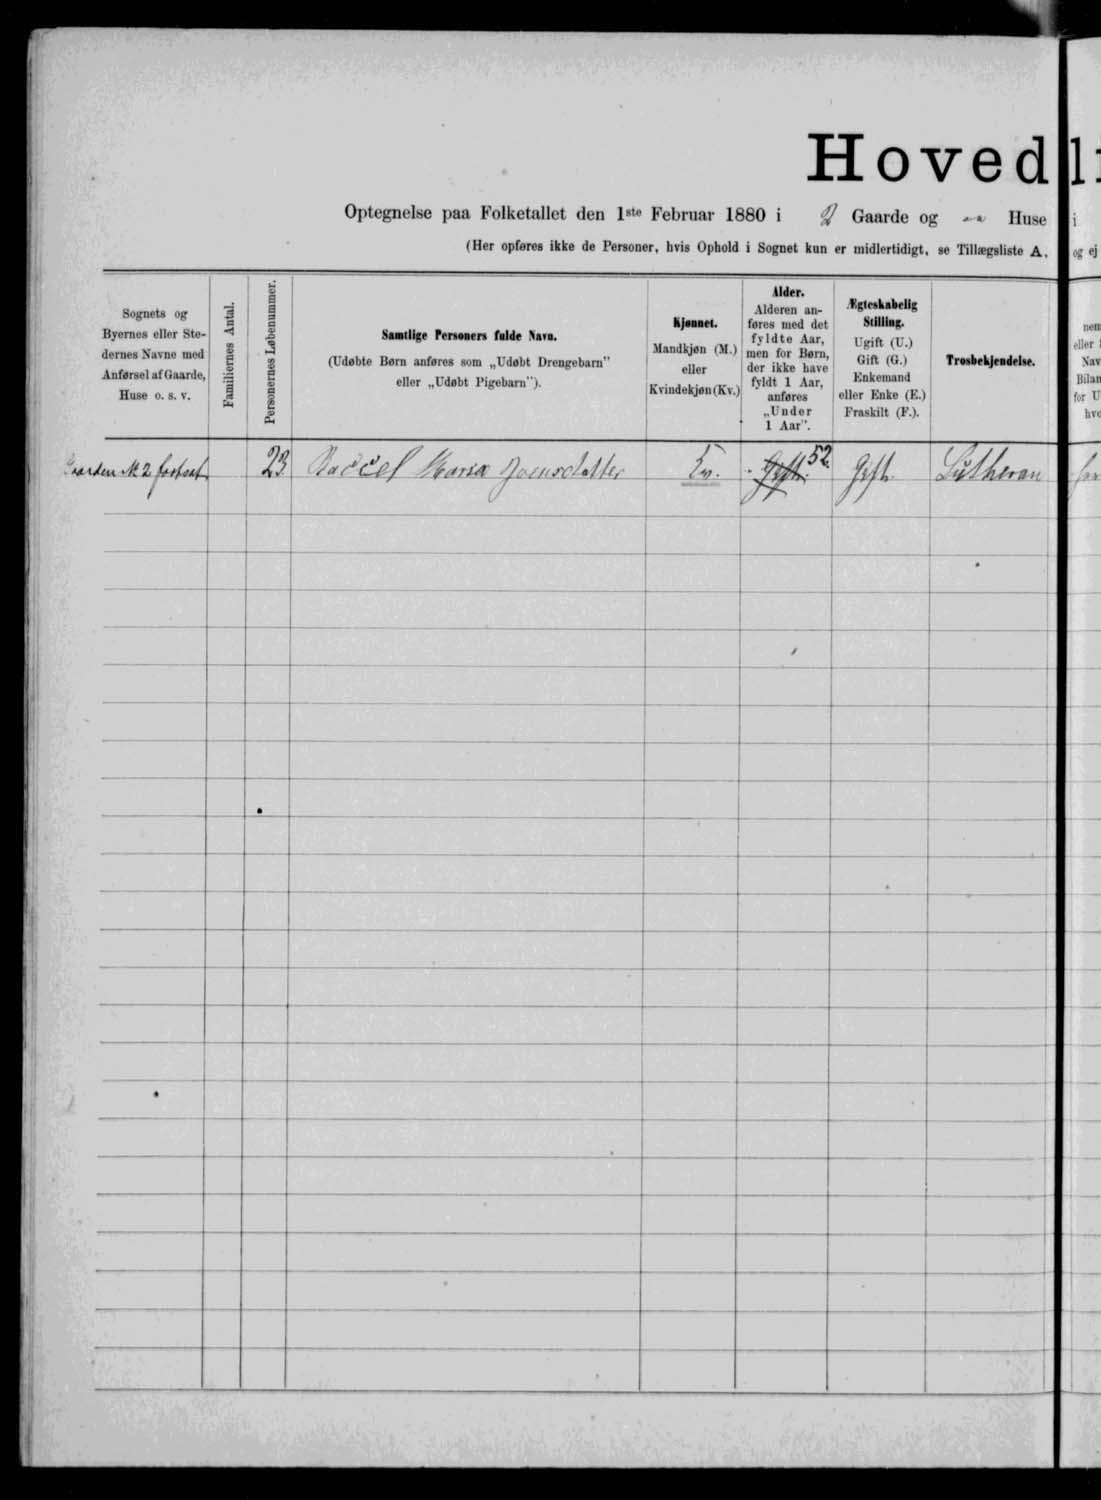 Hovedli
Optegnelse paa Folketallet den 1ste Februar 1880 i 2 Gaarde og Huse i
(Her opføres ikke de Personer, hvis Ophold i Sognet kun er midlertidigt, se Tillægsliste A, og ej
Sognets og
Byernes eller Ste-
dernes Navne med
Anførsel af Gaarde,
Huse o. s. v.
Familiernes Antal.
Personernes Løbenummer.
Samtlige Personers fulde Navn.
(Udøbte Børn anføres som „Udøbt Drengebarn”
eller „Udøbt Pigebarn”).
Kjønnet.
Mandkjøn (M.)
eller
Kvindekjøn (Kv.)
Alder.
Alderen an-
føres med det
fyldte Aar,
men for Børn,
der ikke have
fyldt 1 Aar,
anføres
„Under
1 Aar”.
Ægteskabelig
Stilling.
Ugift (U.)
Gift (G.)
Enkemand
eller Enke (E.)
Fraskilt (F.).
Trosbekjendelse.
nem
eller
Nav
Bilan
for U
hvo
Gaarden № 2 fortsat 23 Maria Kv. Gift. 52 Gift. Lutheran